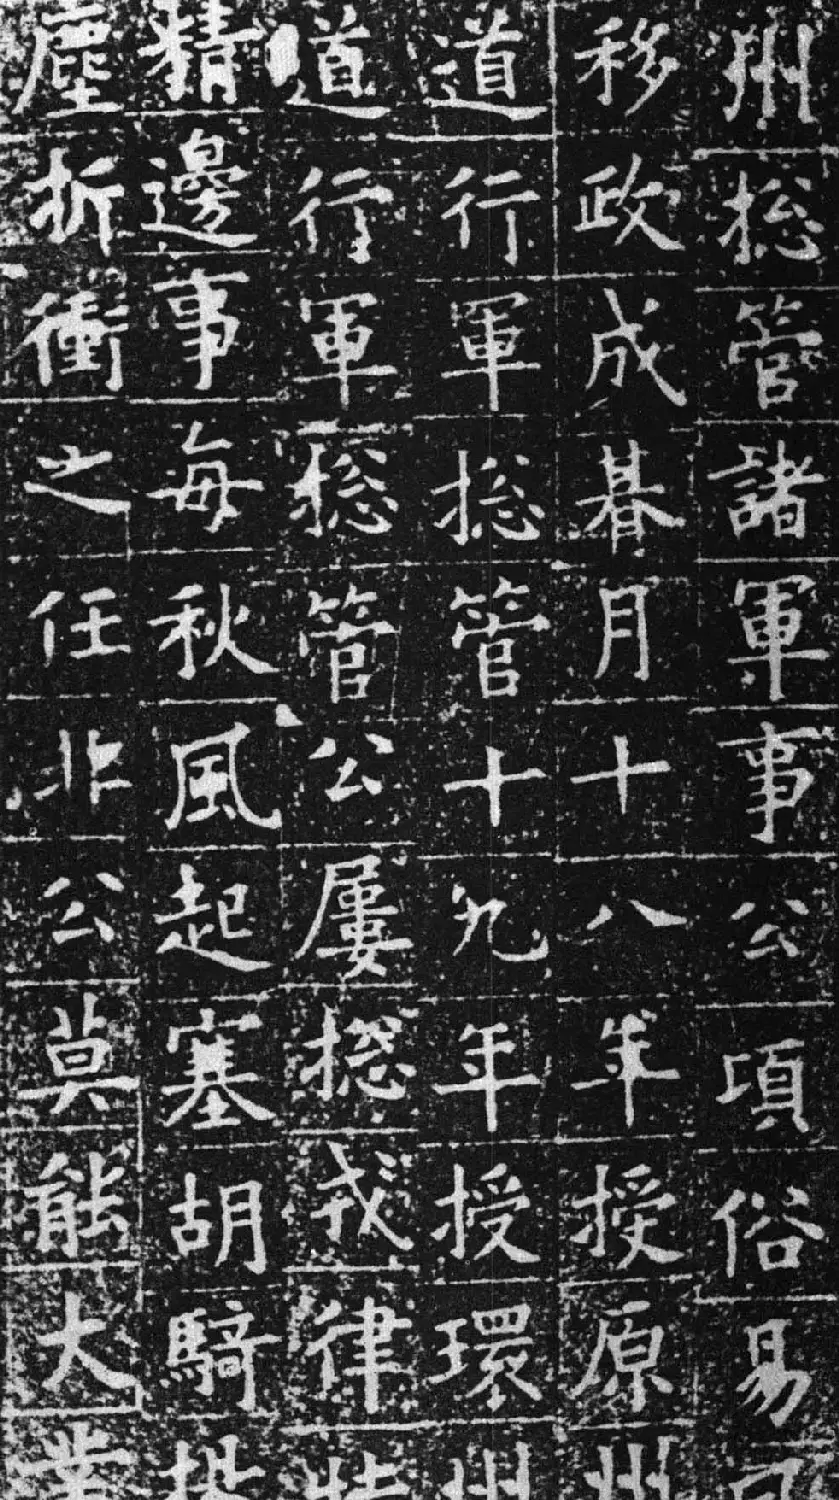 州捴管諸軍事公頃俗易
移政成朞月十八年授原州
道行軍捴管十九年授環州
道行軍捴管公屢捴戎律
精邊事每秋風起塞胡騎
塵折衝之任非公莫能大業